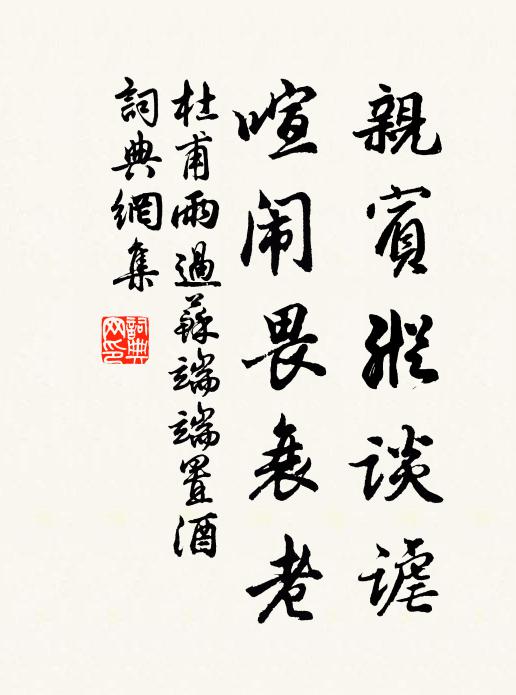 親賓縱談謔
喧闹畏衰老
杜甫雨過蘇端端置酒
詞典網集
詞典
网印